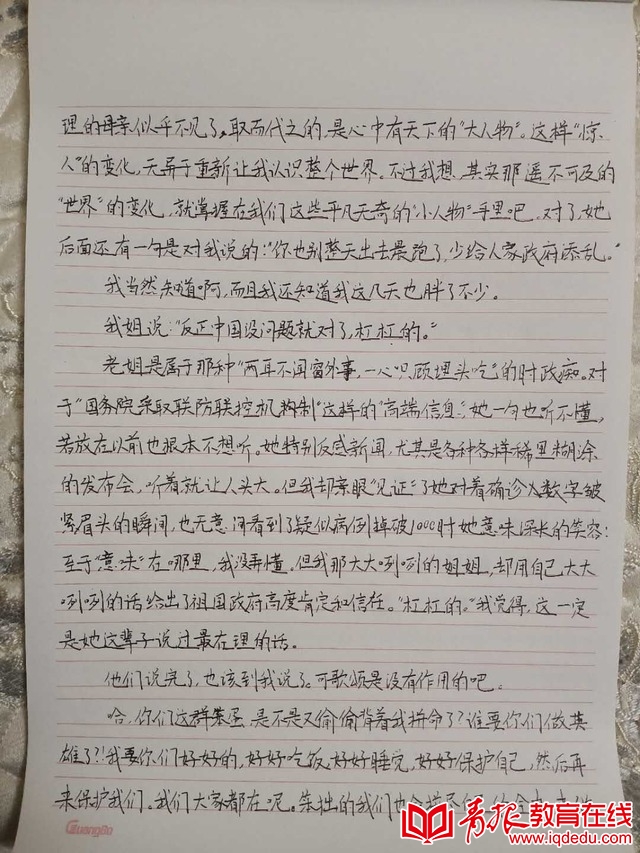 理的母亲似乎不见了，取而代之的，是心中有天下的“大人物”。这样“惊
人”的变化，无异于重新让我认识整个世界。不过我想，其实那遥不可及的
“世界”的变化，就掌握在我们这些平凡无奇的“小人物”手里吧。对了，她
后面还有一句是对我说的：“你也别整天出去晨跑了，少给人家政府添乱。”
我当然知道啊，而且我还知道我这几天也胖了不少。
我姐说：“反正中国没问题就对了，杠杠的。”
老姐是属于那种“两耳不闻窗外事，一心只顾埋头吃”的时政痴。对
于“国务院采取联防联控机构制”这样的“高端信息”，她一句也听不懂，
若放在以前也根本不想听。她特别反感新闻，尤其是各种各样稀里糊涂
的发布会，听着就让人头大。但我却亲眼“见证”了她对着确诊人数字皱
紧眉头的瞬间，也无意间看到了疑似病例掉破1000时她意味深长的笑容：
至于“意味”在哪里，我没弄懂。但我那大大咧咧的姐姐，却用自己大大
咧咧的话给出了祖国政府高度肯定和信任。“杠杠的。”我觉得，这一定
是她这辈子说过最在理的话。
他们说完了，也该到我说了。可歌颂是没有作用的吧。
哈，你们这群笨蛋，是不是又偷偷背着我拼命了？谁要你们做英
雄了？！我要你们好好的，好好吃饭，好好睡觉，好好保护自己，然后再
来保护我们。我们大家都在呢。笨拙的我们也会
Guangbo
青报教育在线
www.iqdedu.com